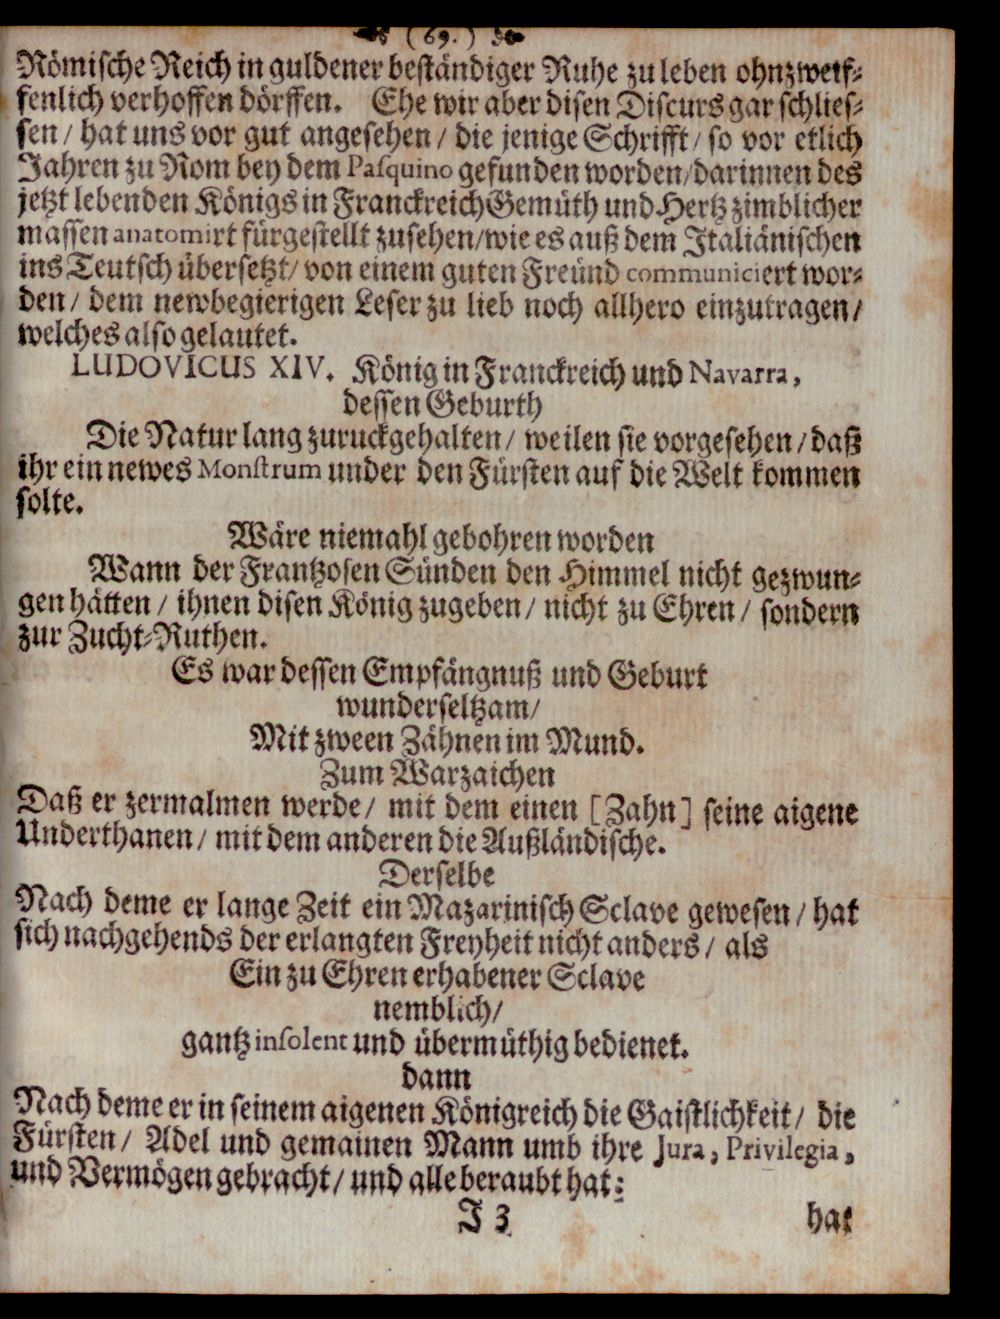 (69.)
Römische Reich in guldener beständiger Ruhe zu leben ohnzweif-
fenlich verhoffen dörffen. Ehe wir aber disen Discurs gar schlies-
sen / hat uns vor gut angesehen / die jenige Schrifft / so vor etlich
Jahren zu Rom bey dem Pasquino gefunden worden / darinnen des
jetzt lebenden Königs in Franckreich Gemüth und Hertz zimblicher
massen anatomirt fürgestellt zusehen / wie es auß dem Italiänischen
ins Teutsch übersetzt / von einem guten Freünd communiciert wor-
den / dem newbegierigen Leser zu lieb noch allhero einzutragen /
welches also gelautet.
LUDOVICUS XIV. König in Franckreich und Navarra,
dessen Geburth
Die Natur lang zuruckgehalten / weilen sie vorgesehen / daß
ihr ein newes Monstrum under den Fürsten auf die Welt kommen
solte.
Wäre niemahl gebohren worden
Wann der Frantzosen Sünden den Himmel nicht gezwun-
gen hätten / ihnen disen König zugeben / nicht zu Ehren / sondern
zur Zucht-Ruthen.
Es war dessen Empfängnuß und Geburt
wunderseltzam /
Mit zween Zähnen im Mund.
Zum Warzaichen
Daß er zermalmen werde / mit dem einen [Zahn] seine aigene
Underthanen / mit dem anderen die Außländische.
Derselbe
Nach deme er lange Zeit ein Mazarinisch Sclave gewesen / hat
sich nachgehends der erlangten Freyheit nicht anders / als
Ein zu Ehren erhabener Sclave
nemblich /
gantz insolent und übermüthig bedienet.
dann
Nach deme er in seinem aigenen Königreich die Gaistlichkeit / die
Fürsten / Adel und gemainen Mann umb ihre Jura, Privilegia,
und Vermögen gebracht / und alle beraubt hat:
J 3 hat